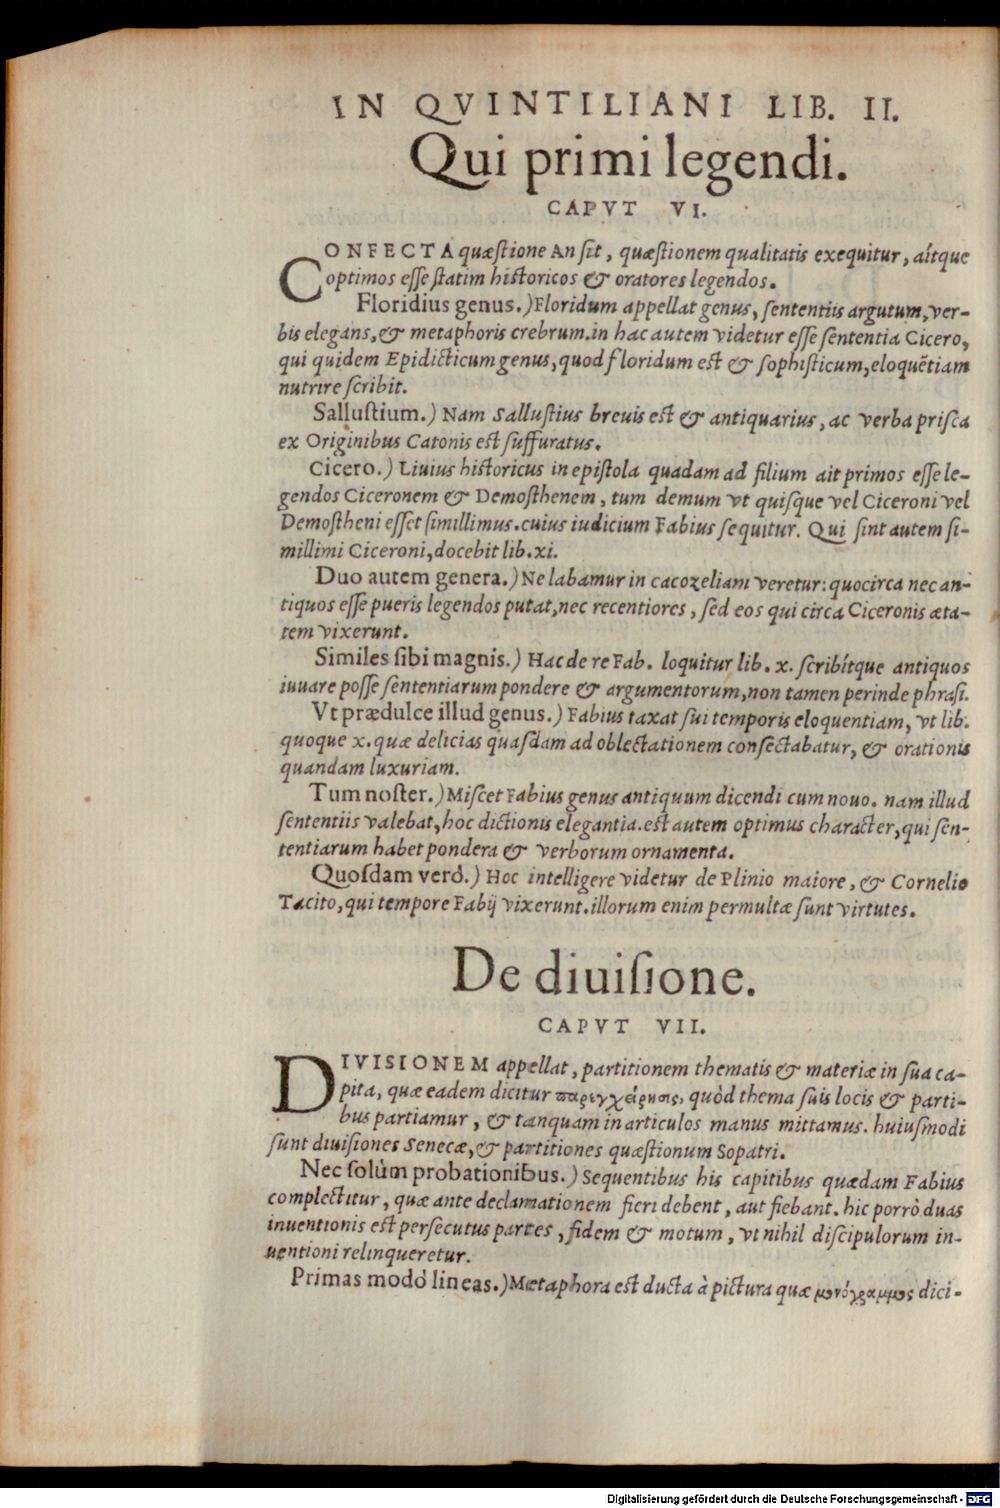 IN QVINTILIANI LIB. II.
Qui primi legendi.
CAPVT VI.
CONFECTA quæſtione An ſit, quæſtionem qualitatis exequitur, aítque
optimos eſſe ſtatim historicos & oratores legendos.
Floridius genus.) Floridum appellat genus, ſententiis argutum, ver-
bis elegans, & metaphoris crebrum. in hac autem videtur eſſe ſententia Cicero,
qui quidem Epidicticum genus, quod floridum est & ſophiſticum, eloquẽtiam
nutrire ſcribit.
Salluſtium.) Nam Salluſtius breuis est & antiquarius, ac verba priſca
ex Originibus Catonis est ſuffuratus.
Cicero.) Liuius historicus in epiſtola quadam ad filium ait primos eſſe le-
gendos Ciceronem & Demoſthenem, tum demum vt quiſque vel Ciceroni vel
Demoſtheni eſſet ſimillimus. cuius iudicium Fabius ſequitur. Qui ſint autem ſi-
millimi Ciceroni, docebit lib. xi.
Duo autem genera.) Ne labamur in cacozeliam veretur: quocirca nec an-
tiquos eſſe pueris legendos putat, nec recentiores, ſed eos qui circa Ciceronis æta-
tem vixerunt.
Similes ſibi magnis.) Hac de re Fab. loquitur lib. x. ſcribítque antiquos
iuuare poſſe ſententiarum pondere & argumentorum, non tamen perinde phraſi.
Vt prædulce illud genus.) Fabius taxat ſui temporis eloquentiam, vt lib.
quoque x. quæ delicias quaſdam ad oblectationem conſectabatur, & orationis
quandam luxuriam.
Tum noſter.) Miſcet Fabius genus antiquum dicendi cum nouo. nam illud
ſententiis valebat, hoc dictionis elegantia. est autem optimus character, qui ſen-
tentiarum habet pondera & verborum ornamenta.
Quoſdam verò.) Hoc intelligere videtur de Plinio maiore, & Cornelio
Tacito, qui tempore Fabij vixerunt. illorum enim permultæ ſunt virtutes.
De diuiſione.
CAPVT VII.
DIVISIONEM appellat, partitionem thematis & materiæ in ſua ca-
pita, quæ eadem dicitur παρεγχείρησις, quòd thema ſuis locis & parti-
bus partiamur, & tanquam in articulos manus mittamus. huiuſmodi
ſunt diuiſiones Senecæ, & partitiones quæſtionum Sopatri.
Nec ſolùm probationibus.) Sequentibus his capitibus quædam Fabius
complectitur, quæ ante declamationem fieri debent, aut fiebant. hic porrò duas
inuentionis est perſecutus partes, fidem & motum, vt nihil diſcipulorum in-
uentioni relinqueretur.
Primas modò lineas.) Metaphora est ducta à pictura quæ μονόγραμμος dici-
Digitalisierung gefördert durch die Deutsche Forschungsgemeinschaft - DFG